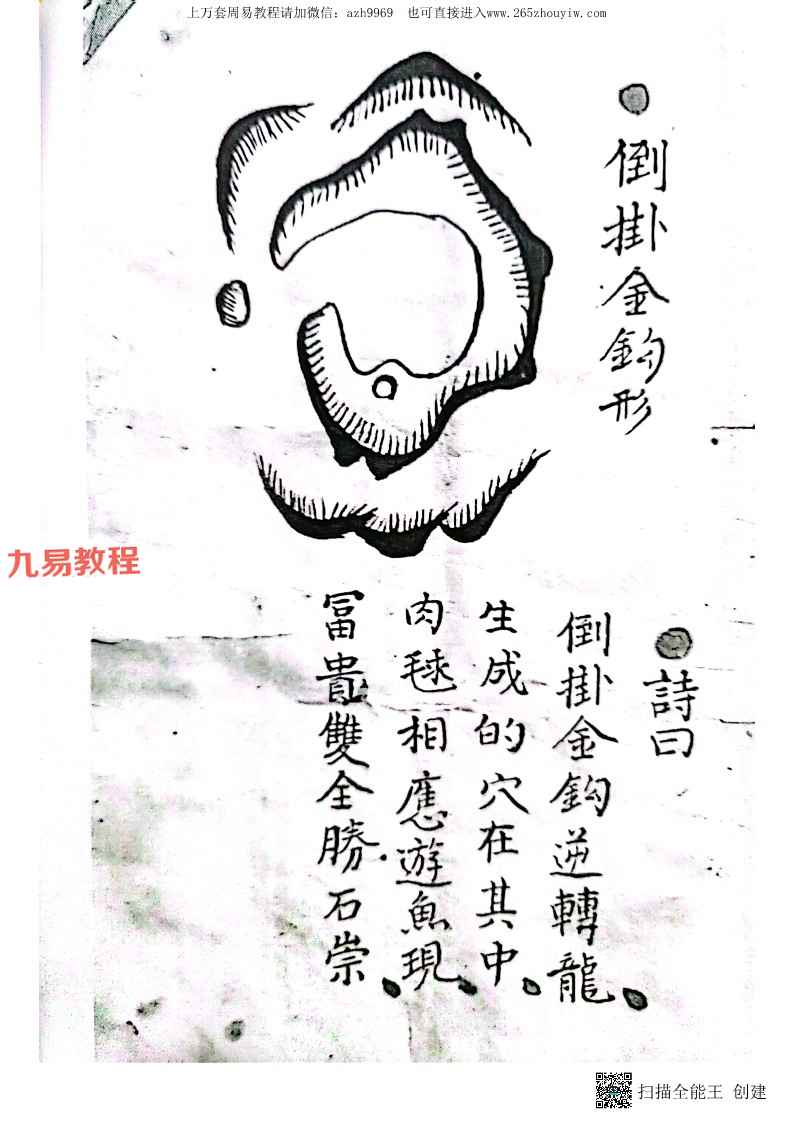 上万套周易教程请加微信：azh9969　也可直接进入www.265zhouyiw.com
倒掛金鈎形
九易教程
詩曰
倒掛金鈎逆轉龍
生成的穴在其中
肉毬相應遊魚現
冨貴雙全勝石崇
扫描全能王 创建